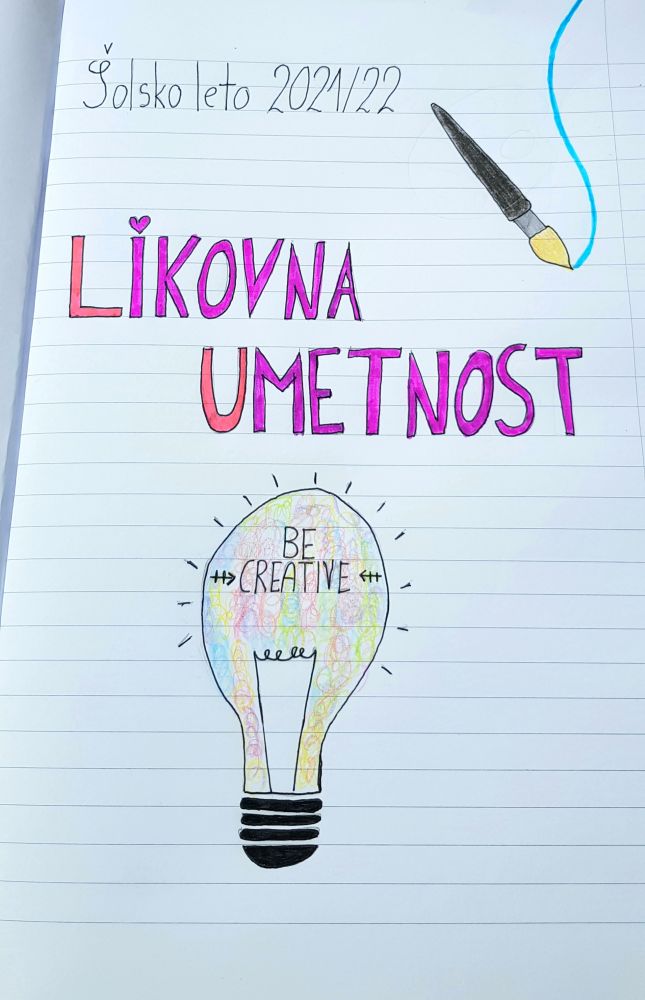 Šolsko leto 2021/22
LiKOVNA
UMETNOST
BE
CREATIVE